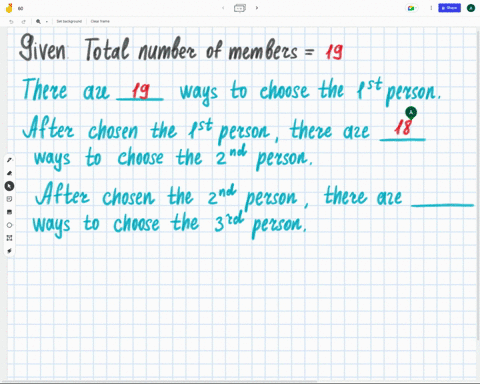 60
Share
A
Set background
Clear frame
Given Total number of members = 19
There are 19 ways to choose the 1st person.
A
After chosen the 1st person, there are 18
ways to choose the 2nd person.
After chosen the 2nd person, there are ____
ways to choose the 3rd person.